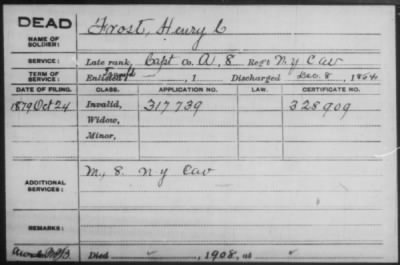 DEAD
NAME OF SOLDIER: Frost, Henry C
SERVICE: Late rank, Capt Co. A, 8 Reg't N.Y Cav
TERM OF SERVICE: Enlisted , 1 Discharged Dec. 8, 1864
DATE OF FILING. CLASS. APPLICATION NO. LAW. CERTIFICATE NO.
1879 Oct 24 Invalid, 317739 328909
Widow,
Minor,
ADDITIONAL SERVICES: M, 8 N Y Cav
REMARKS:
Died , 1908, at